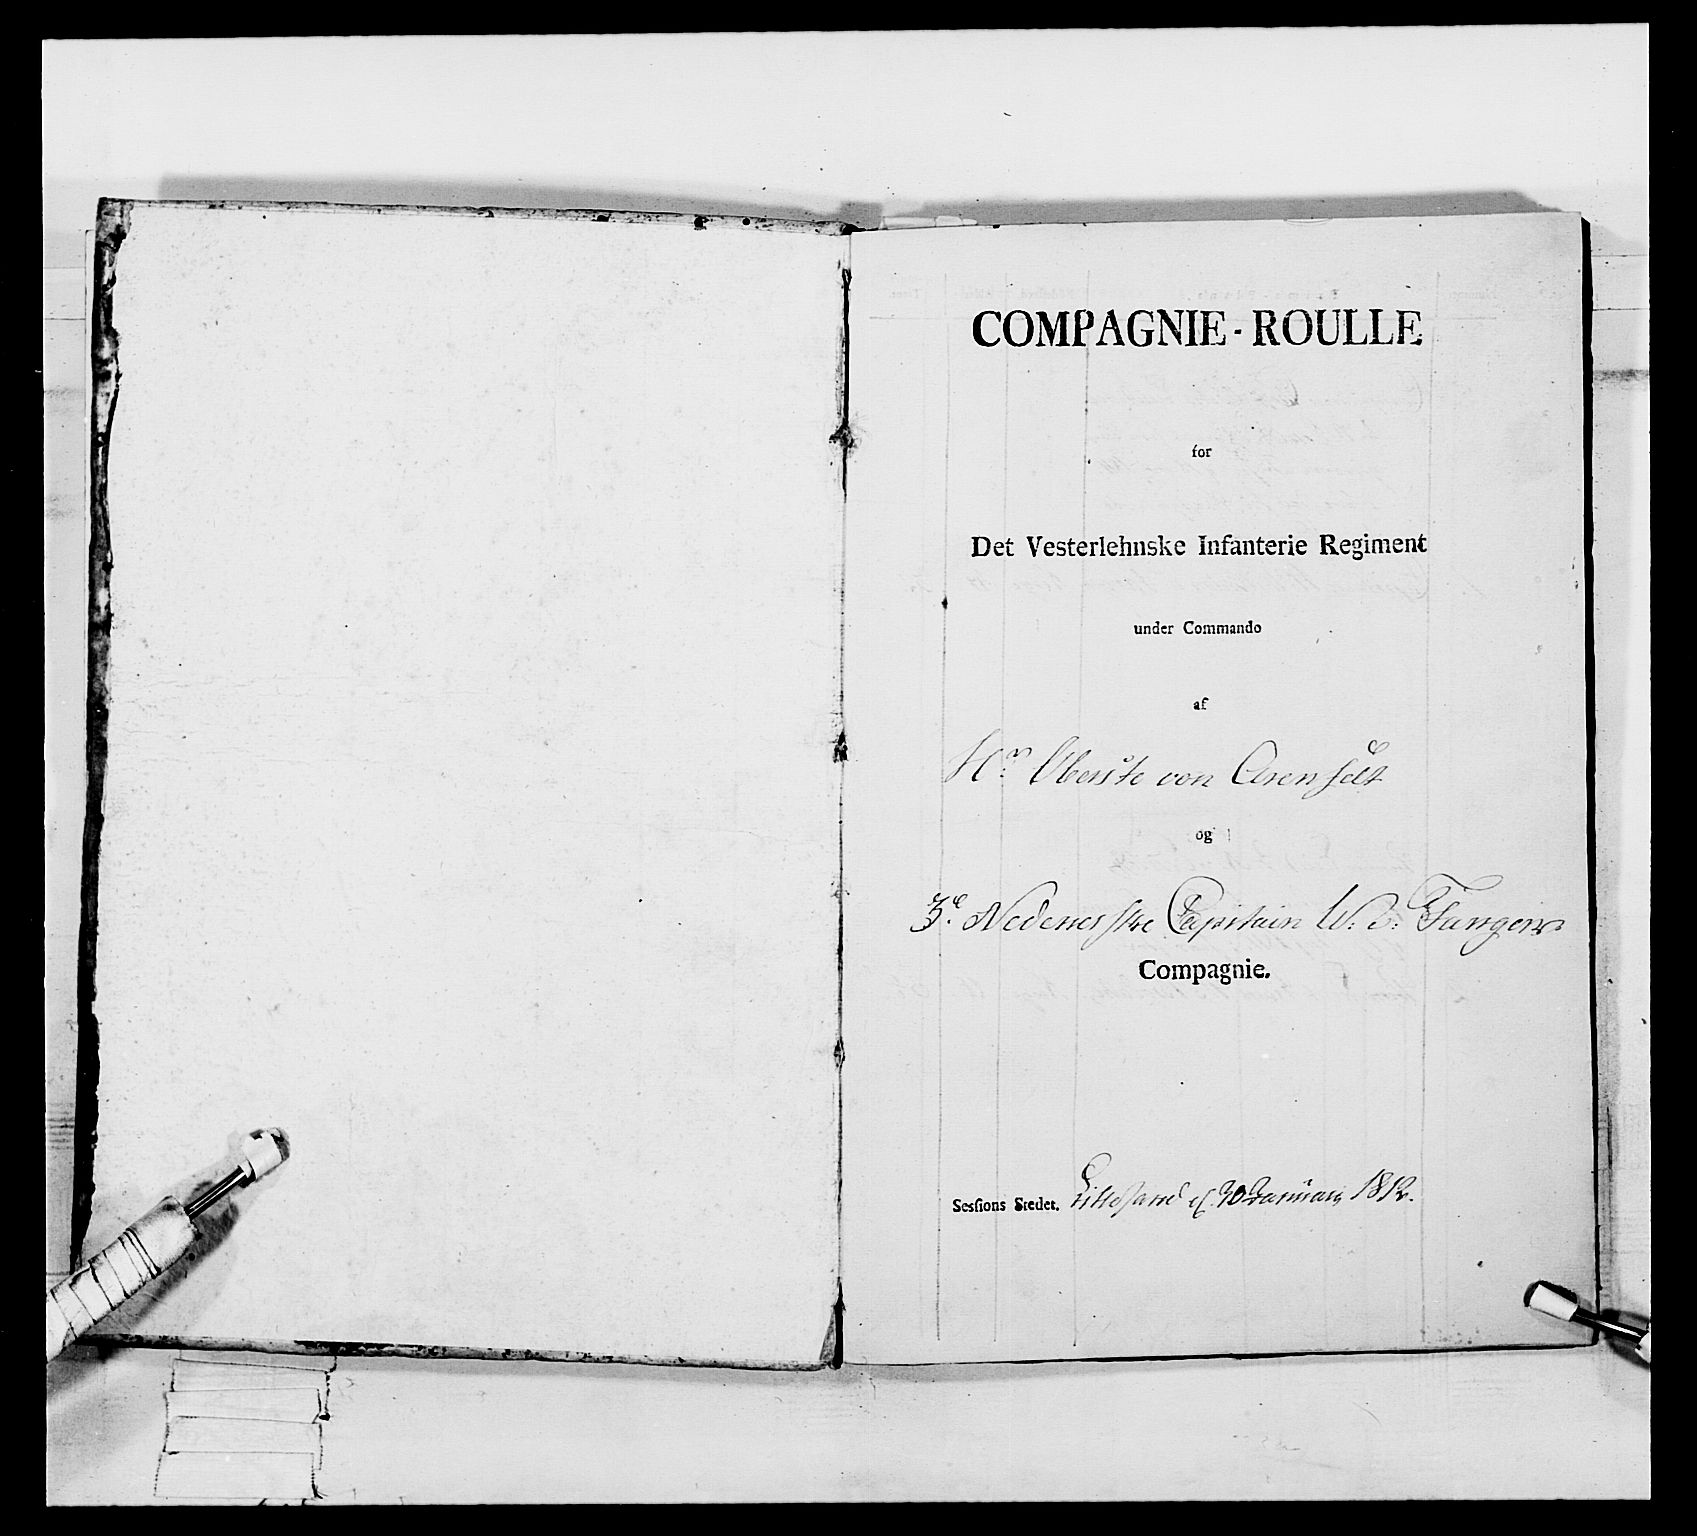 COMPAGNIE-ROULLE
for
Det Vesterlehnske Infanterie Regiment
under Commando
af
Hr: Oberste von Arenfelt
og
3e. Nedenesske Capitain W. C: Fangens
Compagnie.
Sessions Stedet. Lillesand d. 20 Januari 1812.